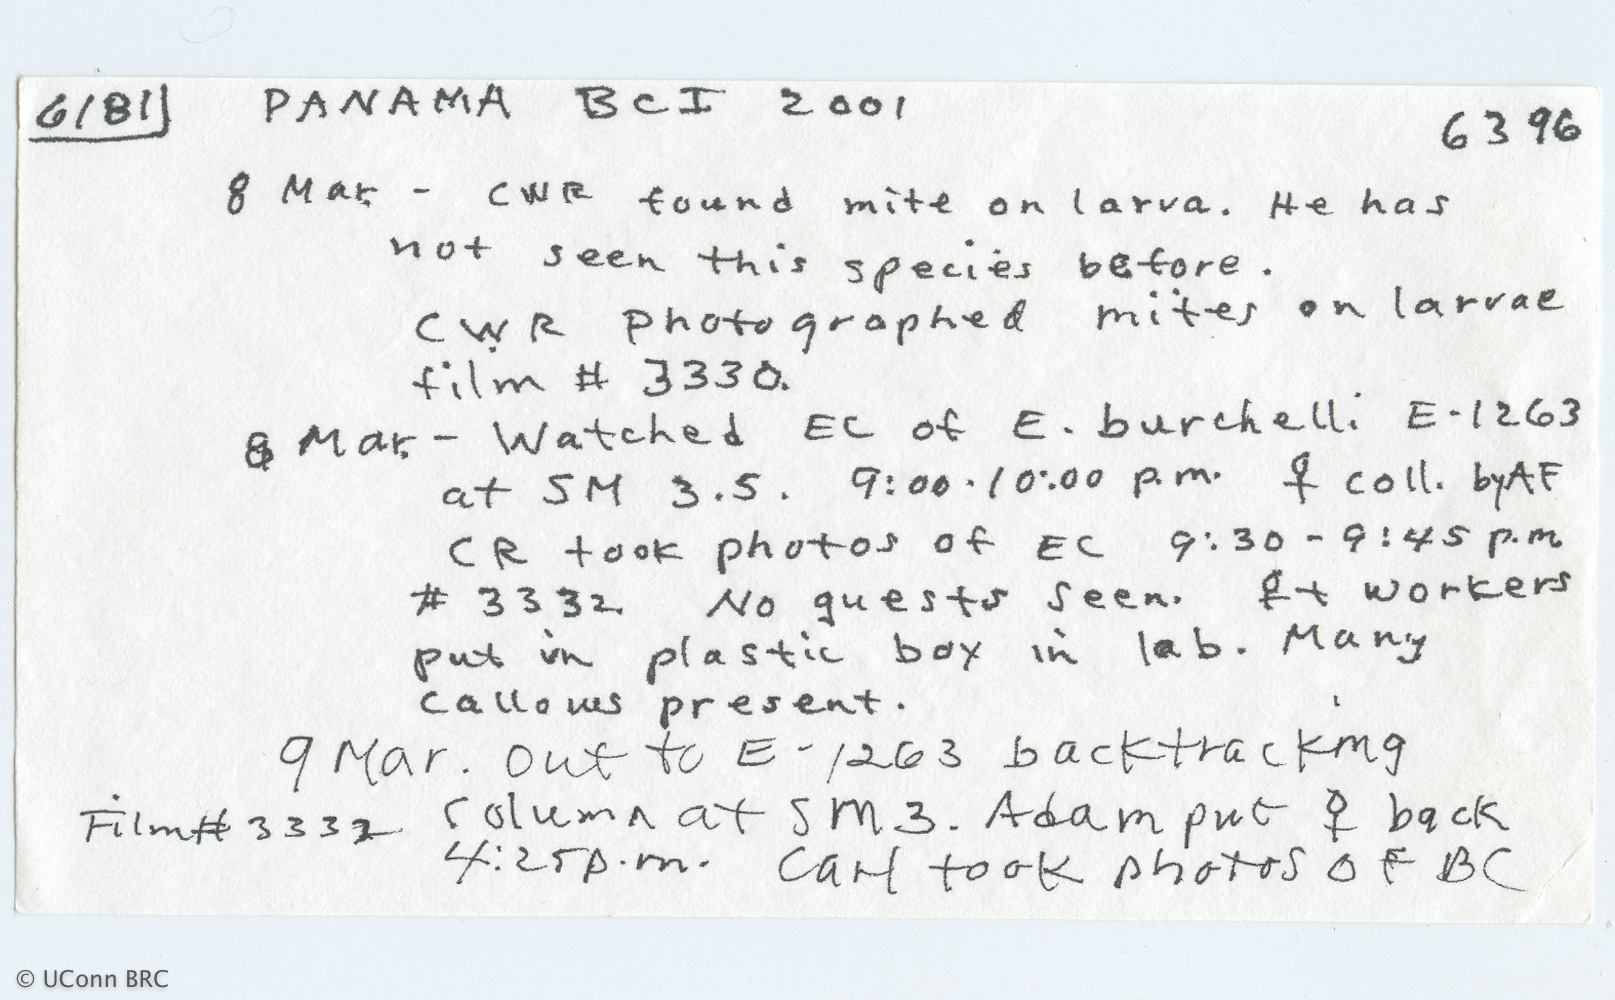 6181 PANAMA BCI 2001 6396
8 Mar. - CWR found mite on larva. He has
not seen this species before.
CWR photographed mites on larvae
film # 3330.
8 Mar. - Watched EC of E. burchelli E-1263
at SM 3.5. 9:00-10:00 p.m. ♀ coll. by AF
CR took photos of EC 9:30 - 9:45 p.m
# 3332 No guests seen. ♀ + workers
put in plastic box in lab. Many
callows present.
9 Mar. out to E-1263 backtracking
Film # 3332 column at SM3. Adam put ♀ back
4:25 p.m. Carl took photos of BC
© UConn BRC